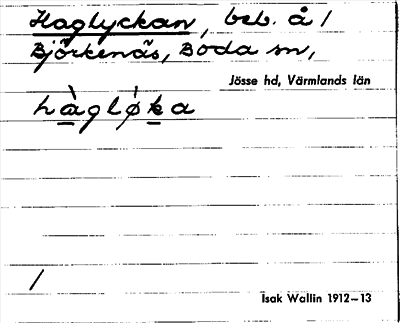 Haglyckan, beb. å 1
Björkenäs, Boda sn,
Jösse hd, Värmlands län
hàgløka
/
Isak Wallin 1912–13